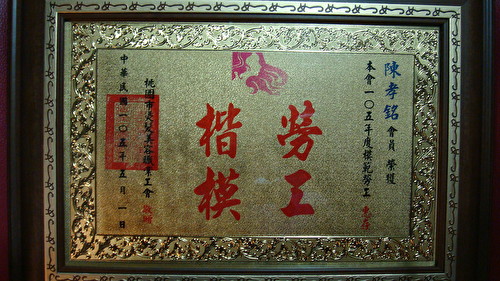 陳孝銘 會員 榮獲
本會一〇五年度模範勞工 惠存
勞工
楷模
桃園市美髮美容職業工會 敬贈
中華民國一〇五年五月一日